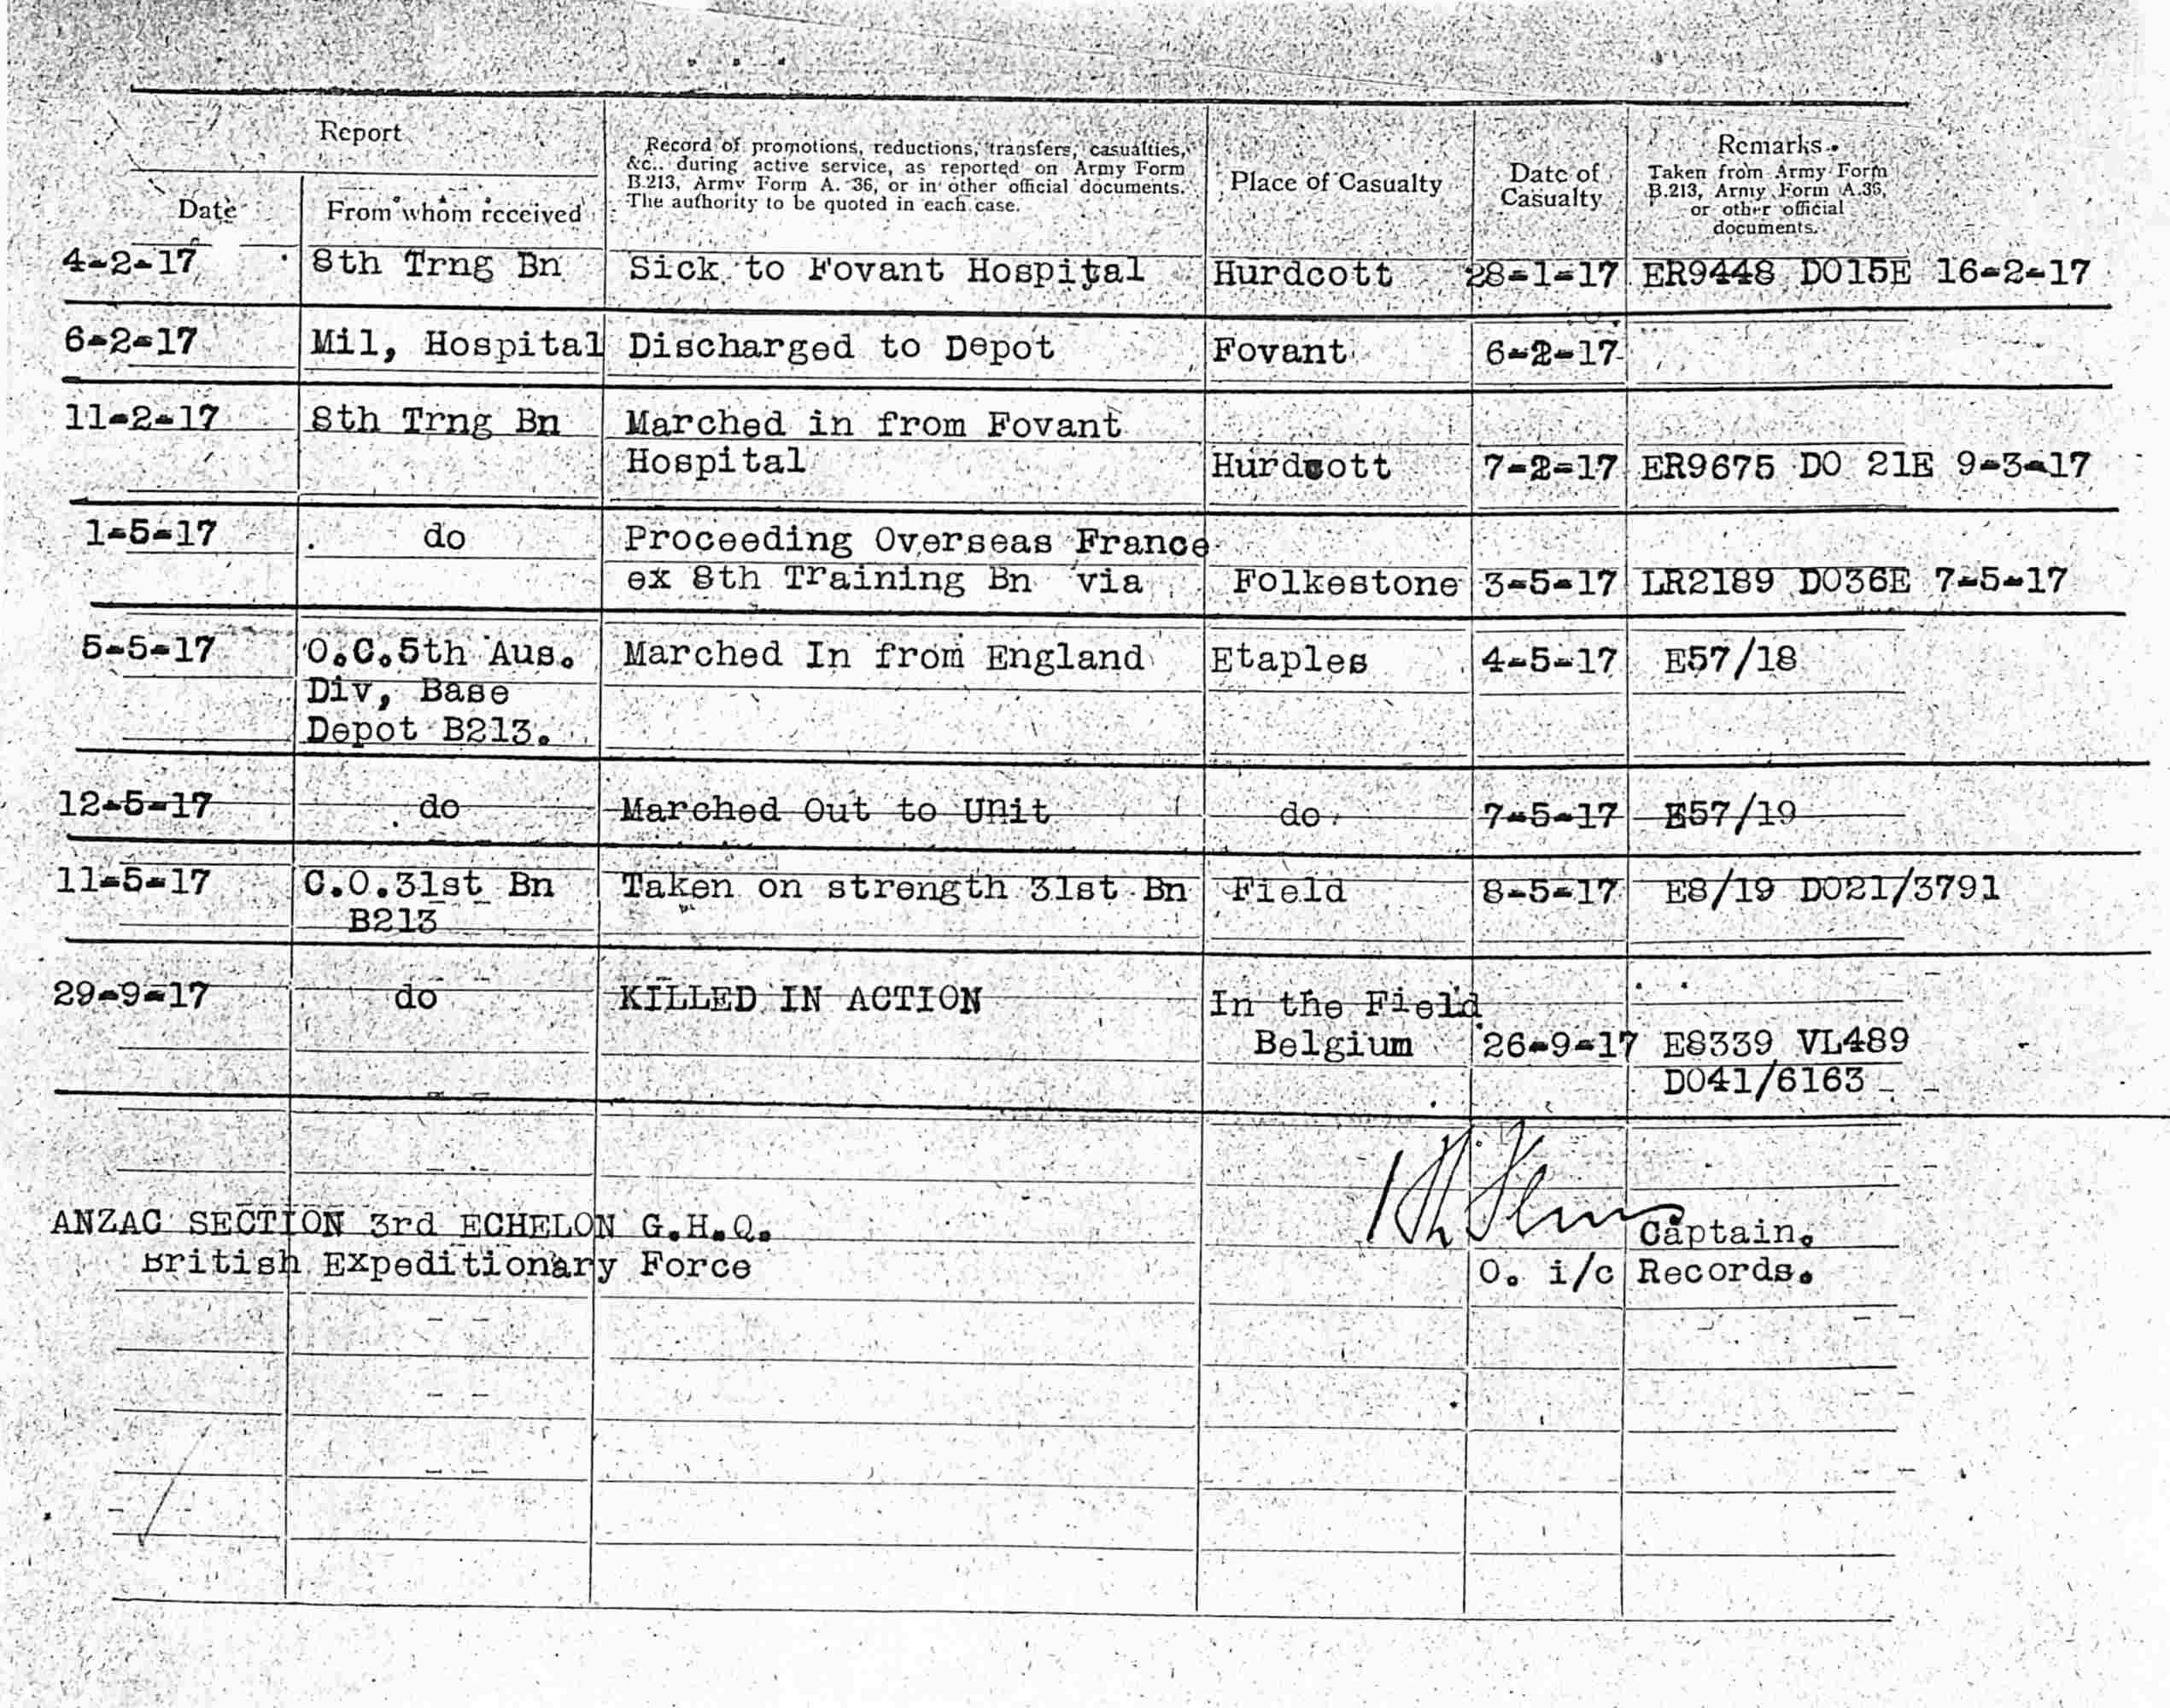 Report
Record of promotions, reductions, transfers, casualties,
&c., during active service, as reported on Army Form
B.213, Army Form A. 36, or in other official documents.
The authority to be quoted in each case.
Place of Casualty
Date of
Casualty
Remarks.
Taken from Army Form
B.213, Army Form A.36,
or other official
documents.
Date
From whom received
4-2-17 8th Trng Bn Sick to Fovant Hospital Hurdcott 28-1-17 ER9448 DO15E 16-2-17
6-2-17 Mil, Hospital Discharged to Depot Fovant 6-2-17
11-2-17 8th Trng Bn Marched in from Fovant
Hospital Hurdcott 7-2-17 ER9675 DO 21E 9-3-17
1-5-17 do Proceeding Overseas France
ex 8th Training Bn via Folkestone 3-5-17 LR2189 DO36E 7-5-17
5-5-17 O.C.5th Aus. Marched In from England Etaples 4-5-17 E57/18
Div, Base
Depot B213.
12-5-17 do Marched Out to Unit do 7-5-17 E57/19
11-5-17 C.O.31st Bn Taken on strength 31st Bn Field 8-5-17 E8/19 DO21/3791
B213
29-9-17 do KILLED IN ACTION In the Field
Belgium 26-9-17 E8339 VL489
DO41/6163
ANZAC SECTION 3rd ECHELON G.H.Q. Captain.
British Expeditionary Force O. i/c Records.